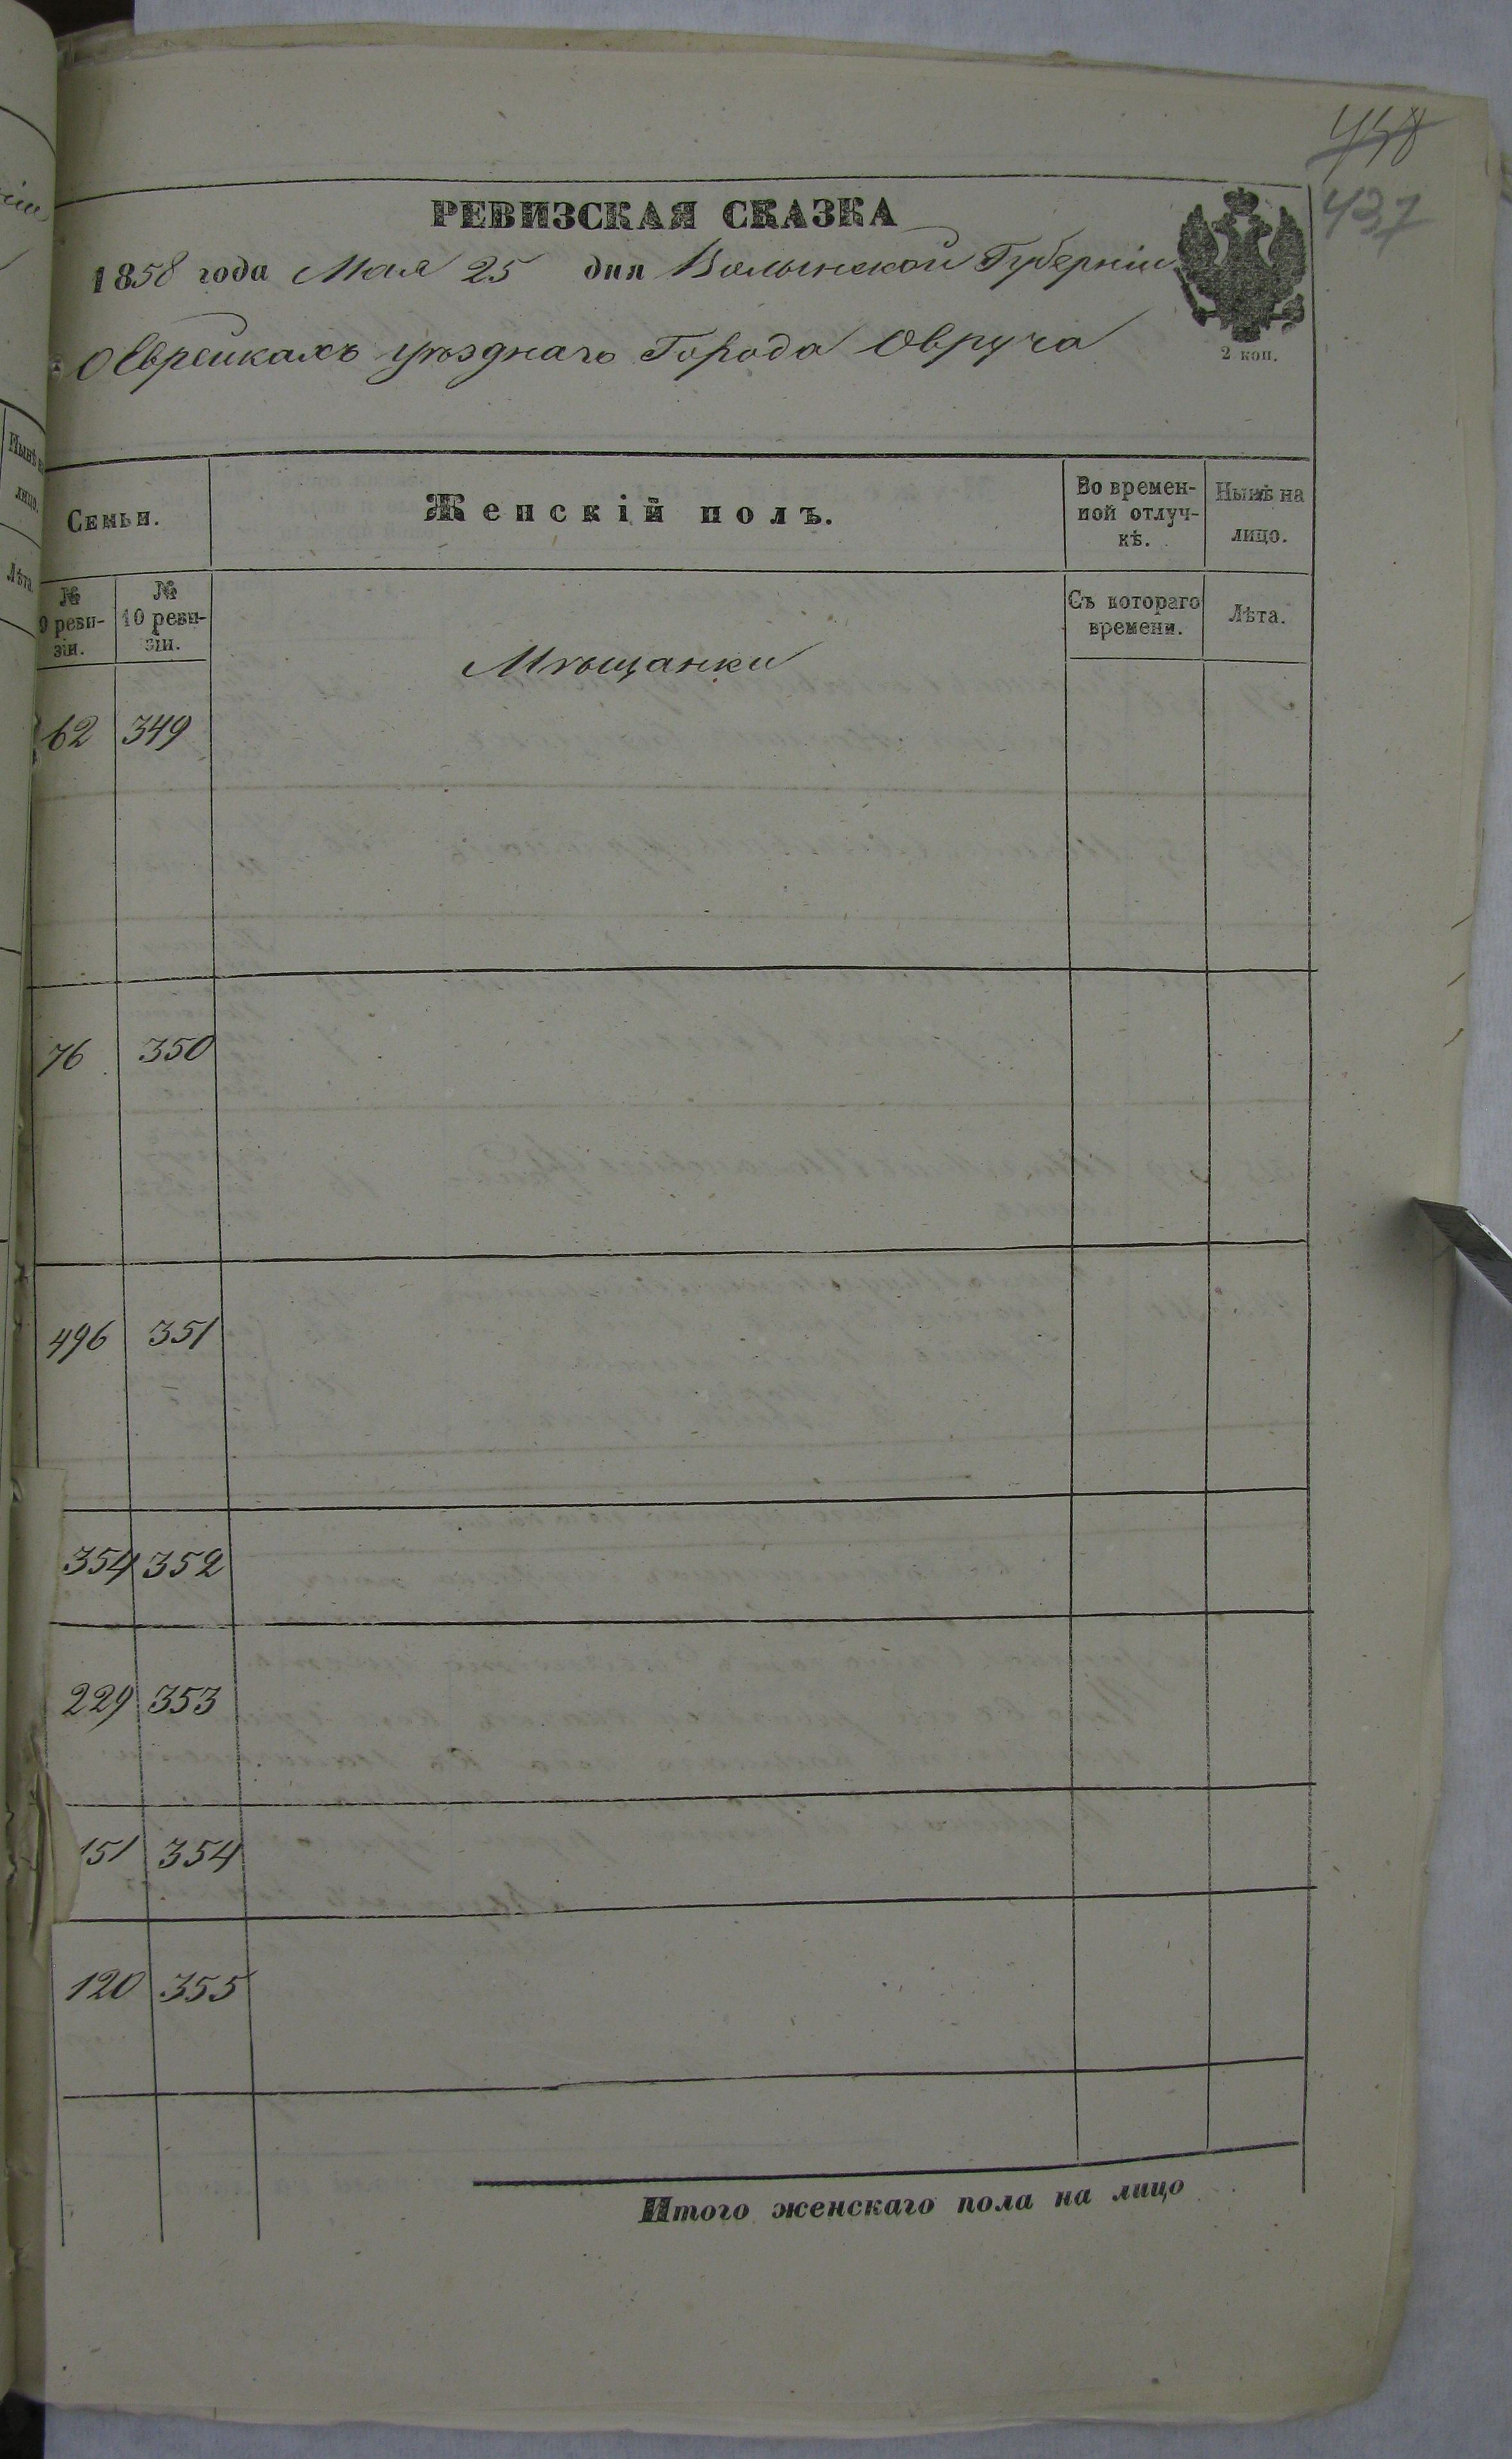 458
437
РЕВИЗСКАЯ СКАЗКА
1858 года Мая 25 дня Волынской Губерніи
О Еврейкахъ уѣзднаго Города Овруча
2 коп.
Семьи.
Женскій полъ.
Во времен-
ной отлуч-
кѣ.
Нынѣ на
лицо.
№
9 реви-
зіи.
№
10 реви-
зіи.
Съ котораго
времени.
Лѣта.
Мѣщанки
62 349
76 350
496 351
354 352
229 353
151 354
120 355
Итого женскаго пола на лицо
Нынѣ на
лицо.
Лѣта.